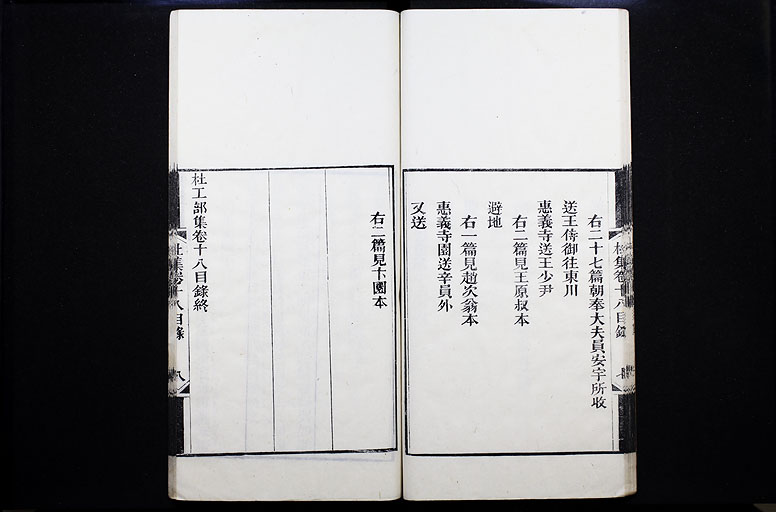 右二十七篇朝奉大夫員安宇所收
送王侍御往東川
惠義寺送王少尹
右二篇見王原叔本
避地
右一篇見趙次翁本
惠義寺園送辛員外
又送
右二篇見卞圜本
杜工部集卷十八目錄終
杜集卷十八目錄
杜集卷十八目錄
八